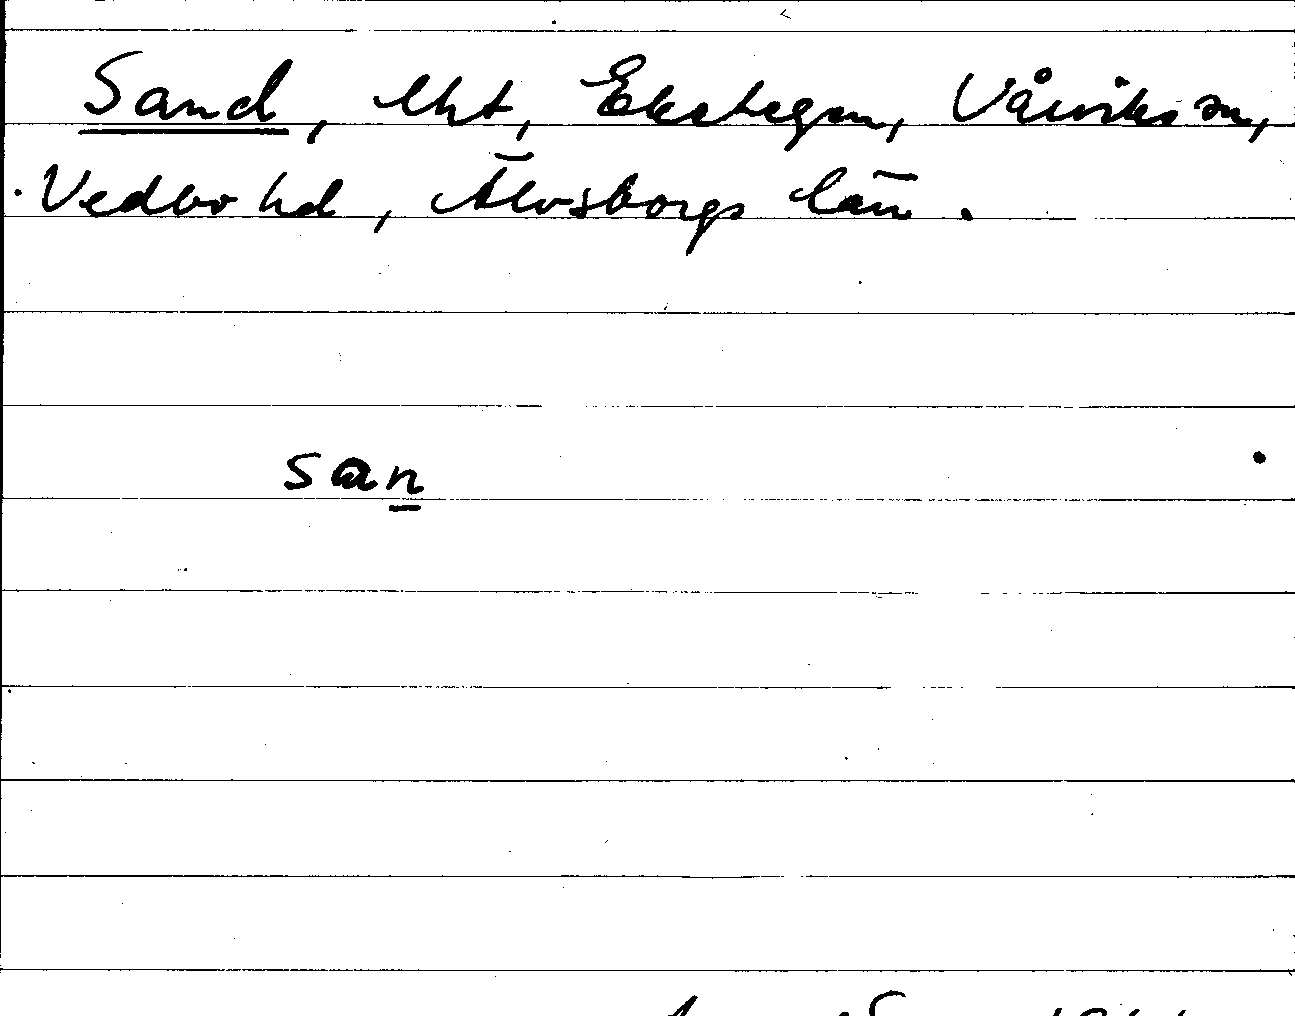 Sand, lht, Ekstegen, Vårviks sn,
Vedbo hd, Älvsborgs län.
san